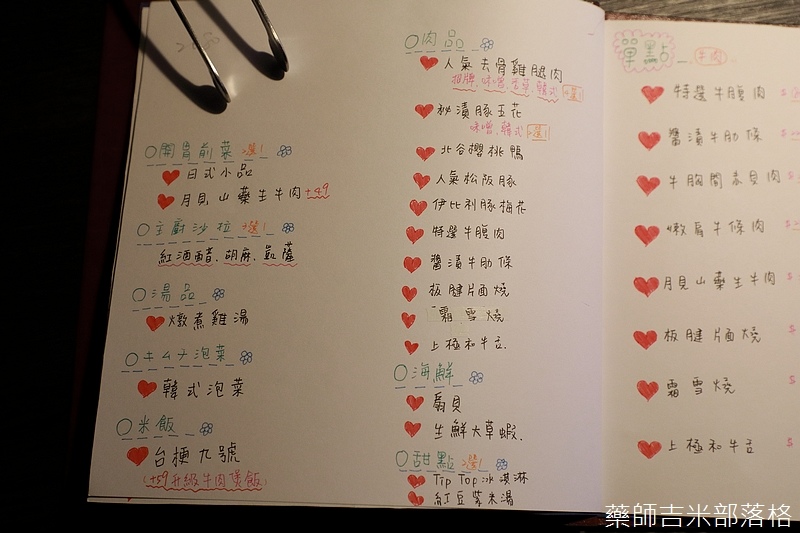 開胃前菜 2選1
日式小品
月見山藥生牛肉+49
主廚沙拉 3選1
紅酒醋、胡麻、凱薩
湯品
燉煮雞湯
キムチ泡菜
韓式泡菜
米飯
台梗九號
(+59升級牛肉煲飯)
肉品
人氣去骨雞腿肉
招牌、味噌、香草、韓式 4選1
祕漬豚五花
味噌、韓式 2選1
北谷櫻桃鴨
人氣松阪豚
伊比利豚梅花
特選牛腹肉
醬漬牛肋條
板腱片面燒
霜雪燒
上極和牛舌
海鮮
扇貝
生鮮大草蝦.
甜點 2選1
Tip Top冰淇淋
紅豆紫米湯
單點 牛肉
特選牛腹肉 $
醬漬牛肋條 $
牛胸間素貝肉 $
嫩肩牛條肉 $
月見山藥生牛肉 $
板腱片面燒 $
霜雪燒 $
上極和牛舌 $
藥師吉米部落格